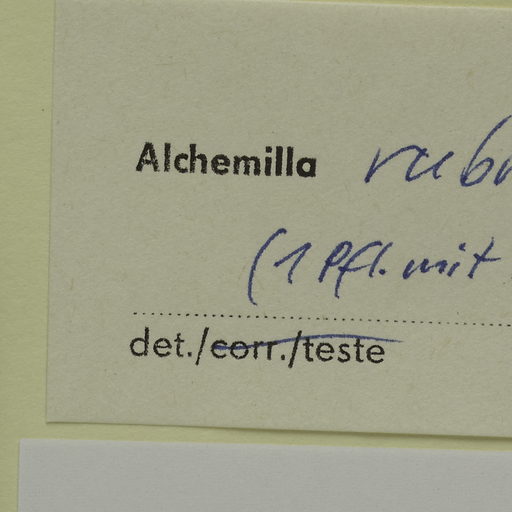 Alchemilla
(1 Pfl. mit
det./corr./teste